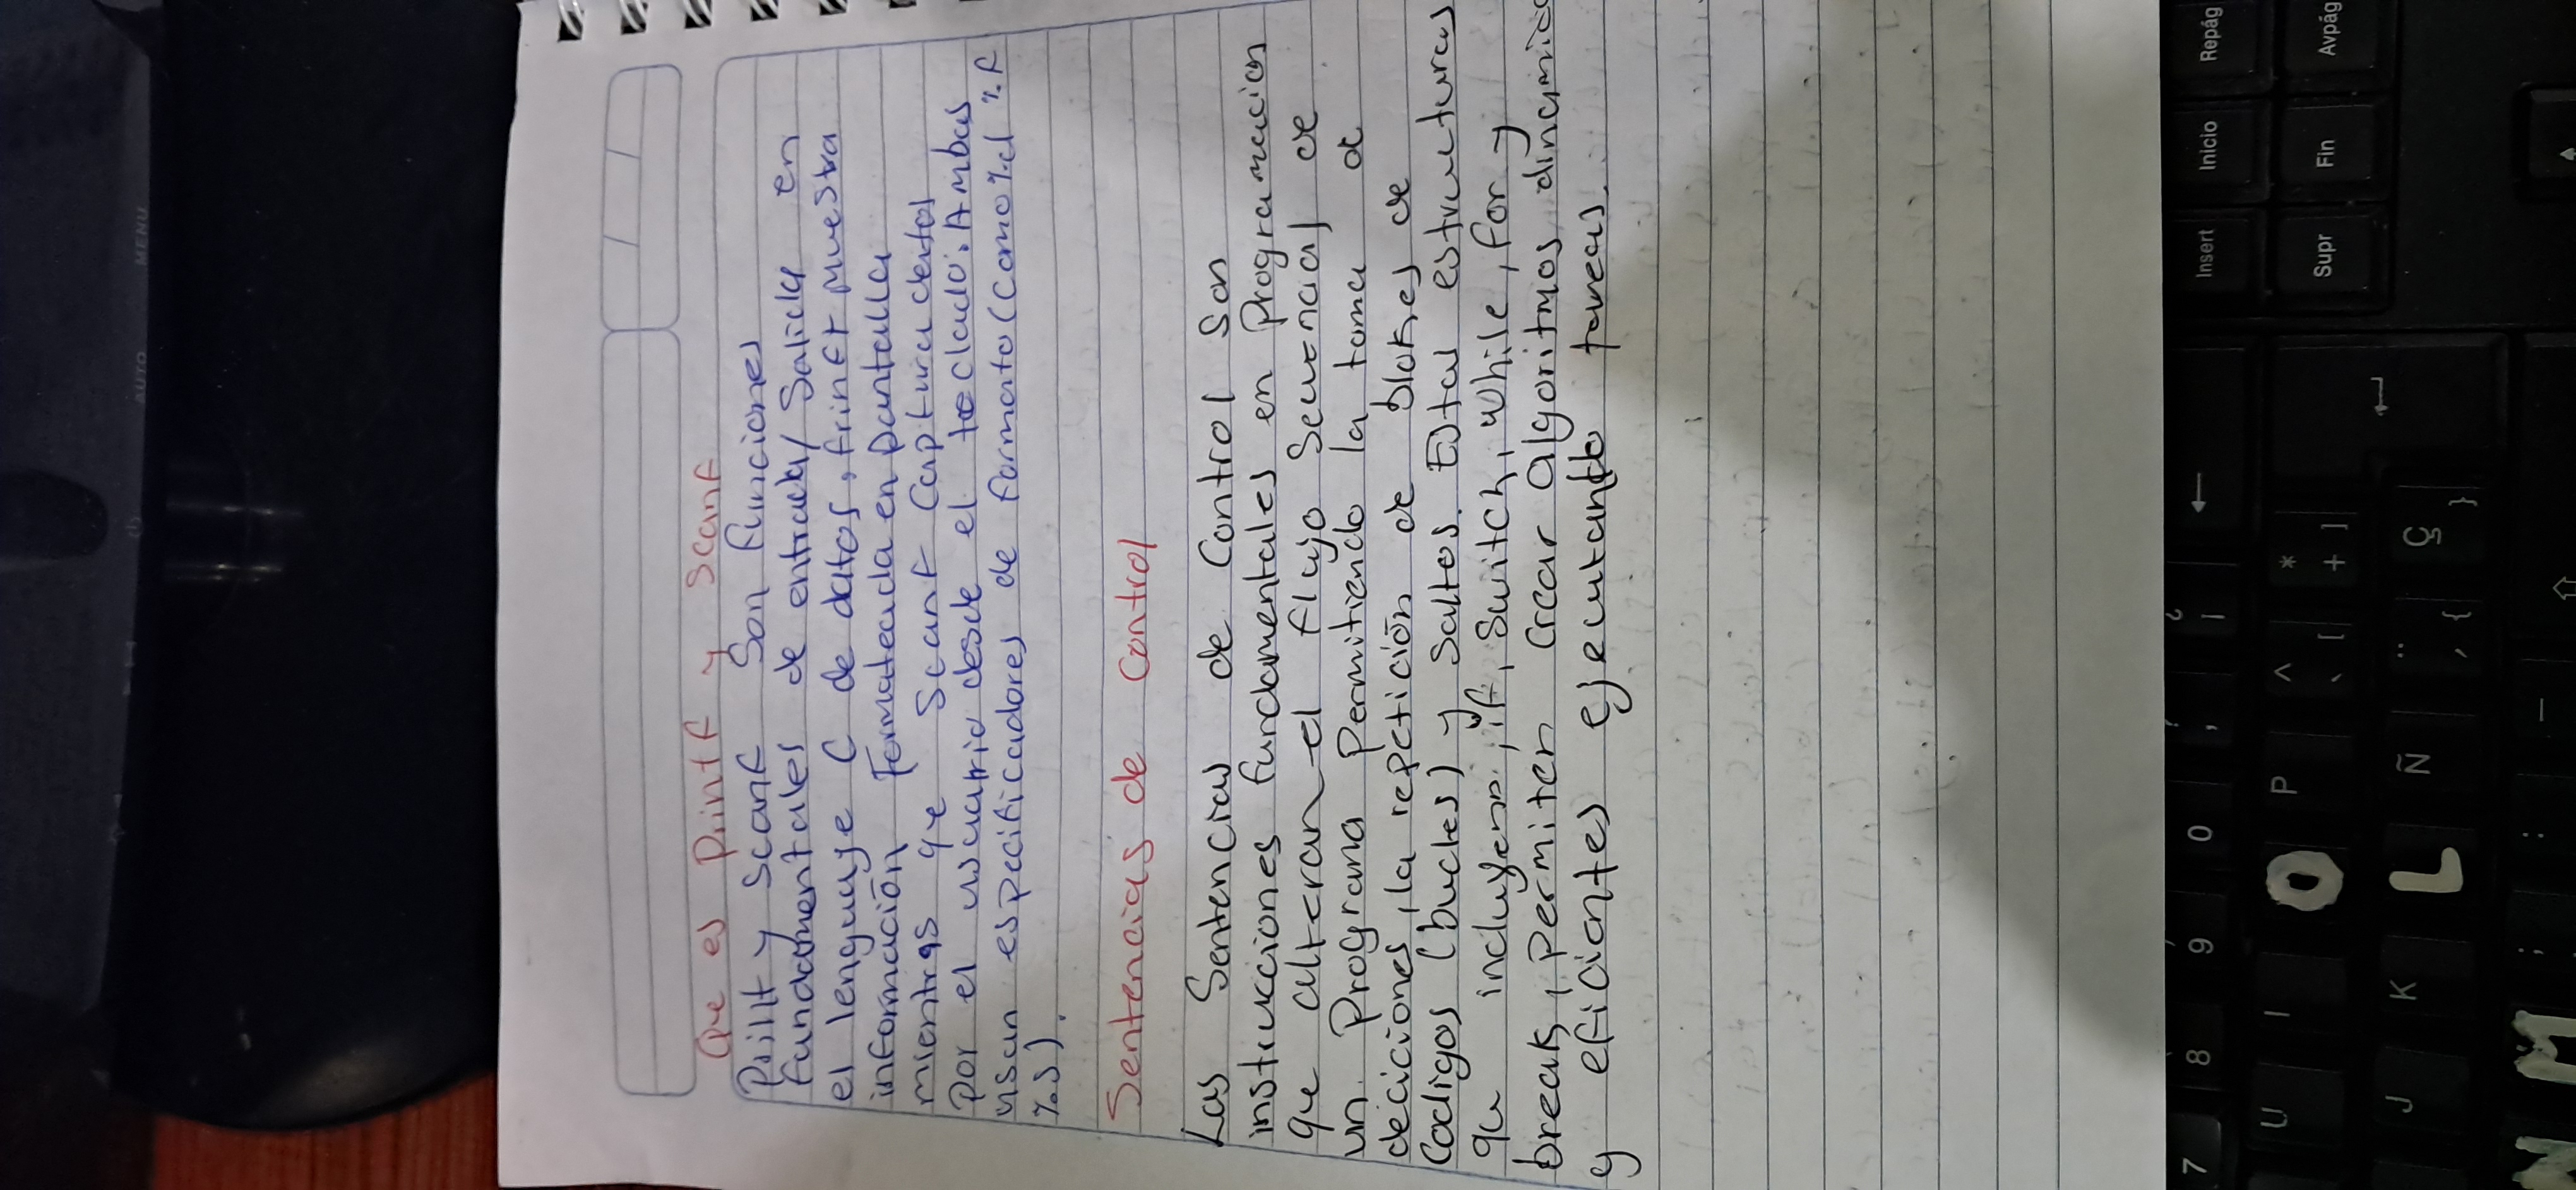 Que es printf y scanf
Printf y scanf son funciones
fundamentales de entrada/salida en
el lenguaje C de datos, frinft muestra
información formateada en pantalla
mientras que scanf captura datos
por el usuario desde el teclado. Ambas
usan especificadores de formato (como %d %f
%s).
Sentencias de control
Las Sentencias de Control Son
instrucciones fundamentales en Programacion
que alteran el flujo secuencial de
un Programa Permitiendo la toma de
deciciones, la repetición de blokes de
Codigos (bucles) y Saltos. Estas estructuras
que incluyen, if, Switch, while, for y
break, Permiten crear algoritmos dinamicos
y eficiantes ejecutando tareas.
AUTO
MENU
Repág
Avpág
Inicio
Fin
Insert
Supr
7
8
9
0
?
'
¿
¡
U
I
O
P
^
` [
*
+ ]
J
K
L
Ñ
¨
´ {
Ç
}
M
;
,
:
.
_
-